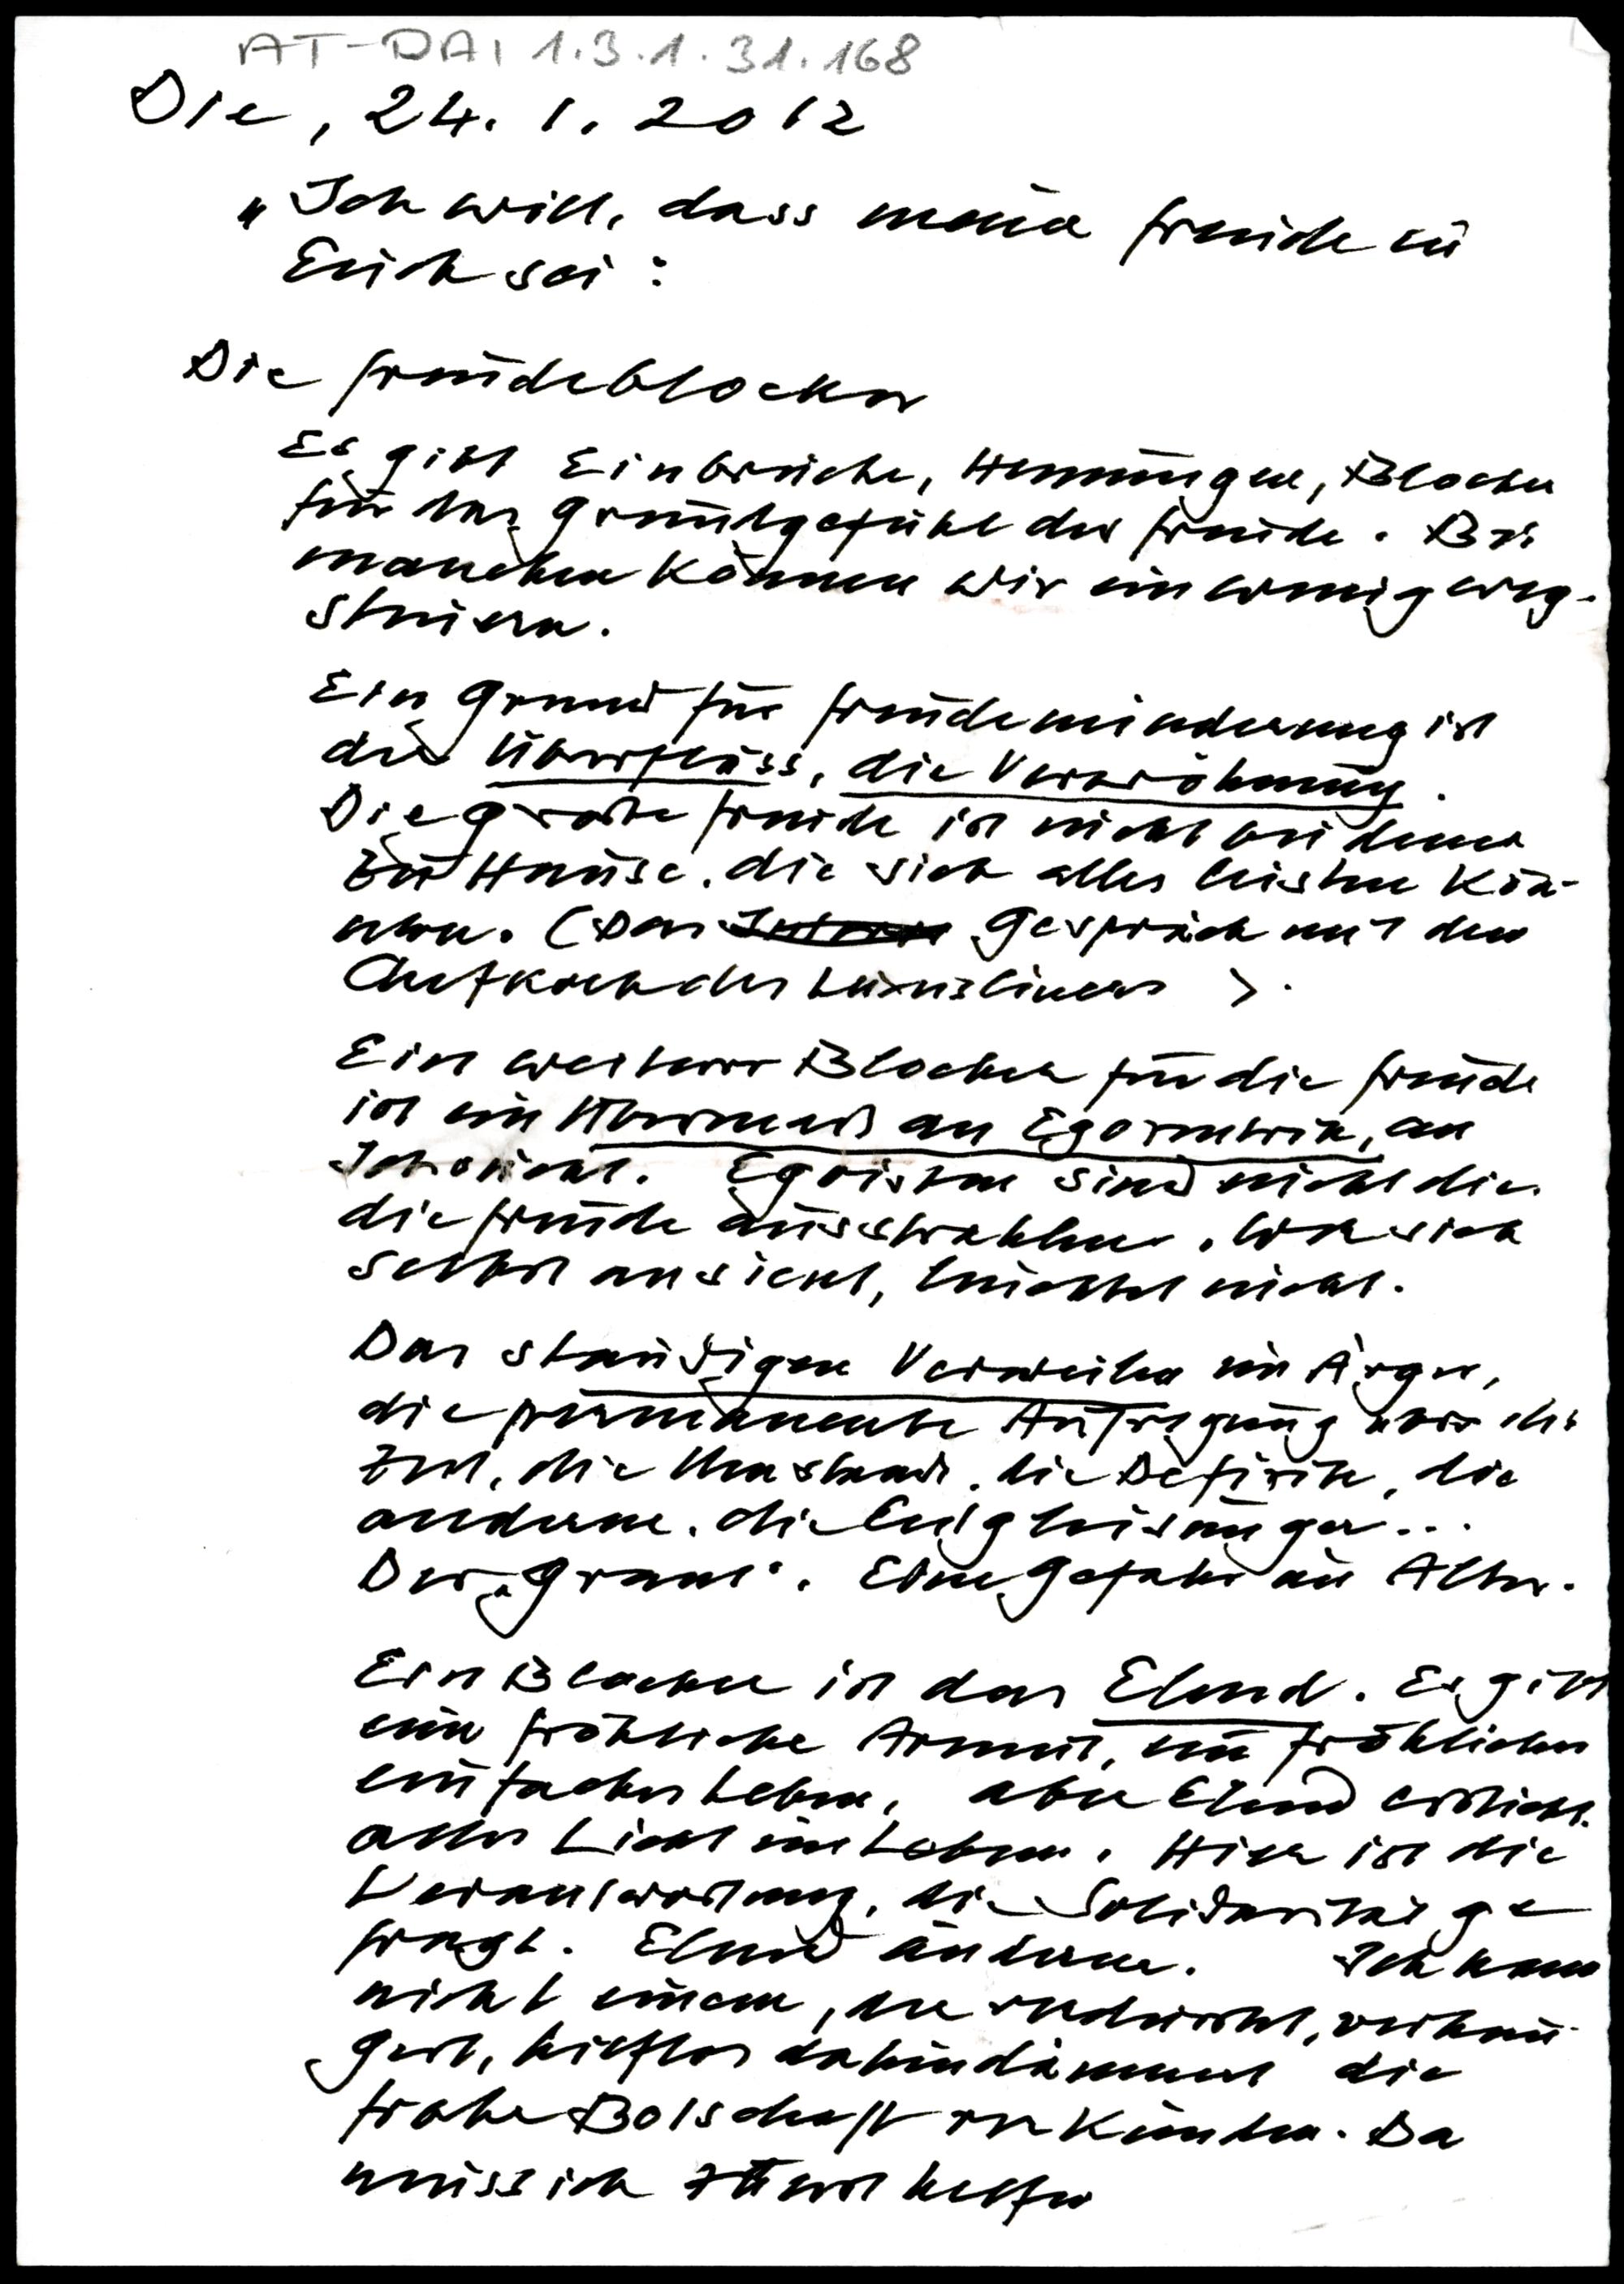 AT-DAI 1.3.1.31.168
Die, 24. 1. 2012
„Ich will, dass meine Freude in
Euch sei:
Die Freudeblocker
Es gibt Einbrüche, Hemmungen, Blocker
für das Grundgefühl der Freude. Bei
manchen können wir ein wenig weg-
steuern.
Ein Grund für Freudeminderung ist
der Überfluss, die Verwöhnung.
Die große Freude ist nicht bei denen
zu Hause, die sich alles leisten kön-
nen. (Das Gespräch mit dem
Chefkoch des Luxusliners).
Ein weiterer Blocker für die Freude
ist ein Übermaß an Egozentrik, an
Ichsicht. Egoisten sind nicht die
die Freude ausstrahlen. Wer sich
selbst ansieht, leuchtet nicht.
Das ständige Verweilen im Ärger,
die permanente Aufregung über die
Zeit, die Umstände, die Defizite, die
anderen, die Entgleisungen...
Der „Grant". Eine Gefahr im Alter.
Ein Blocker ist das Elend. Es gibt
eine fröhliche Armut, ein fröhliches
einfaches Leben, aber Elend erstickt
alles Licht im Leben. Hier ist die
Verantwortung, die Solidarität ge
fragt. Elend ändern. Ich kann
nicht einem, der verdurstet, verhun-
gert, hilflos dahindämmert die
frohe Botschaft verkünden. Da
muss ich zuerst helfen